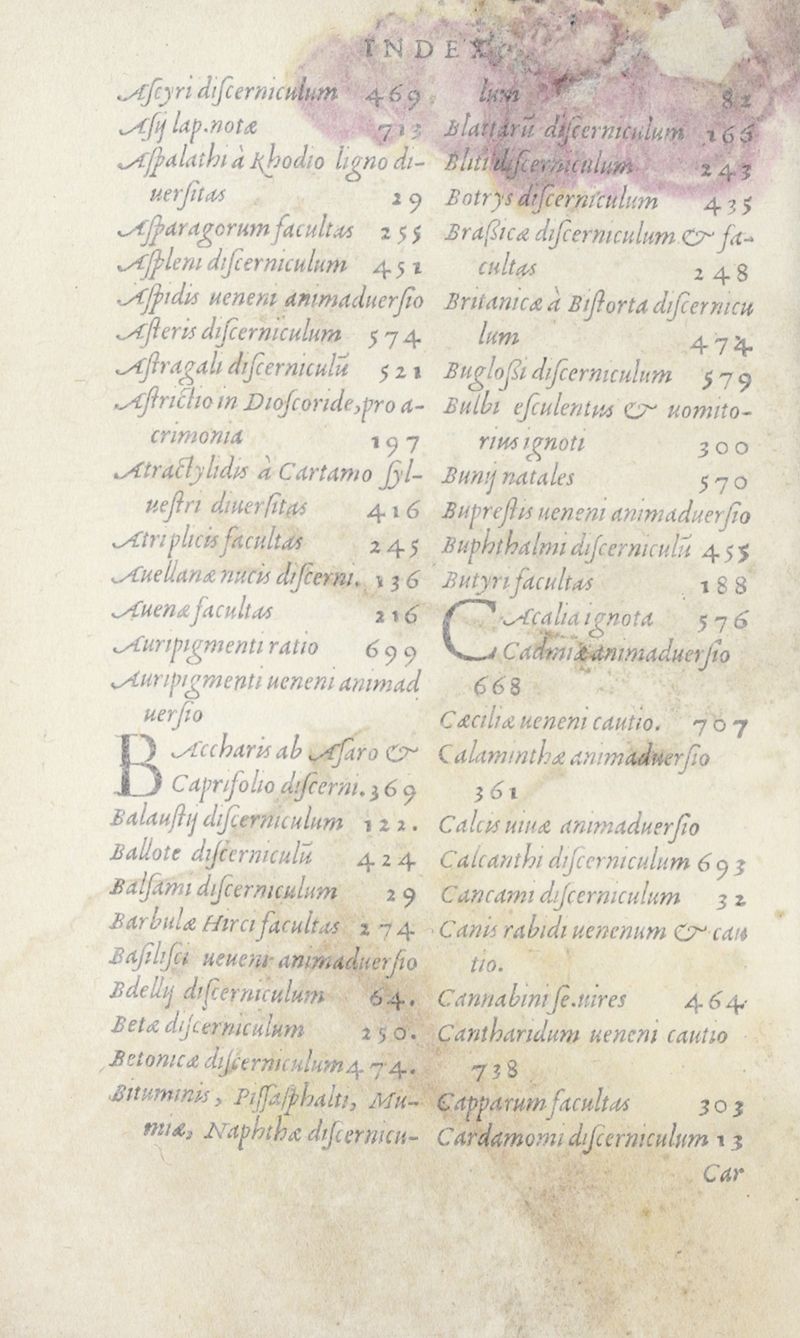 INDEX
Aſcyri diſcerniculum 469
Aſij lap.notæ 713
Aſpalathi à Rhodio ligno di-
uerſitas 29
Aſparagorum facultas 255
Aſpleni diſcerniculum 451
Aſpidis ueneni animaduerſio
Aſteris diſcerniculum 574
Aſtragali diſcerniculū 521
Aſtrictio in Dioſcoride,pro a-
crimonia 197
Atractylidis à Cartamo ſyl-
ueſtri diuerſitas 416
Atriplicis facultas 245
Auellanæ nucis diſcerni. 136
Auenæ facultas 216
Auripigmenti ratio 699
Auripigmenti ueneni animad
uerſio
BAccharis ab Aſaro &
Caprifolio diſcerni.369
Balauſtij diſcerniculum 122.
Ballote diſcerniculū 424
Balſami diſcerniculum 29
Barbulæ Hirci facultas 274
Baſiliſci ueueni animaduerſio
Bdellij diſcerniculum 64.
Betæ diſcerniculum 250.
Betonicæ diſcerniculum 474.
Bituminis, Piſſaſphalti, Mu-
miæ, Naphthæ diſcernicu-
lum 82
Blattarū diſcerniculum 166
Bliti diſcerniculum 243
Botrys diſcerniculum 435
Braßicæ diſcerniculum & fa-
cultas 248
Britanicæ à Biſtorta diſcernicu
lum 474
Bugloßi diſcerniculum 579
Bulbi eſculentus & uomito-
rius ignoti 300
Bunij natales 570
Bupreſtis ueneni animaduerſio
Buphthalmi diſcerniculū 455
Butyri facultas 188
CAcalia ignota 576
Cadmiæ animaduerſio
668
Cæciliæ ueneni cautio. 707
Calaminthæ animaduerſio
361
Calcis uiuæ animaduerſio
Calcanthi diſcerniculum 693
Cancami diſcerniculum 32
Canis rabidi uenenum & cau
tio.
Cannabini ſe.uires 464
Cantharidum ueneni cautio
738
Capparum facultas 303
Cardamomi diſcerniculum 13
Car